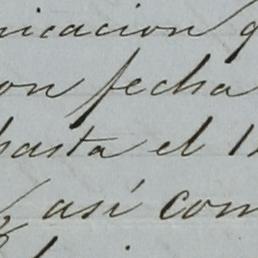 nicacion q
on fecha
hasta el 1
así com